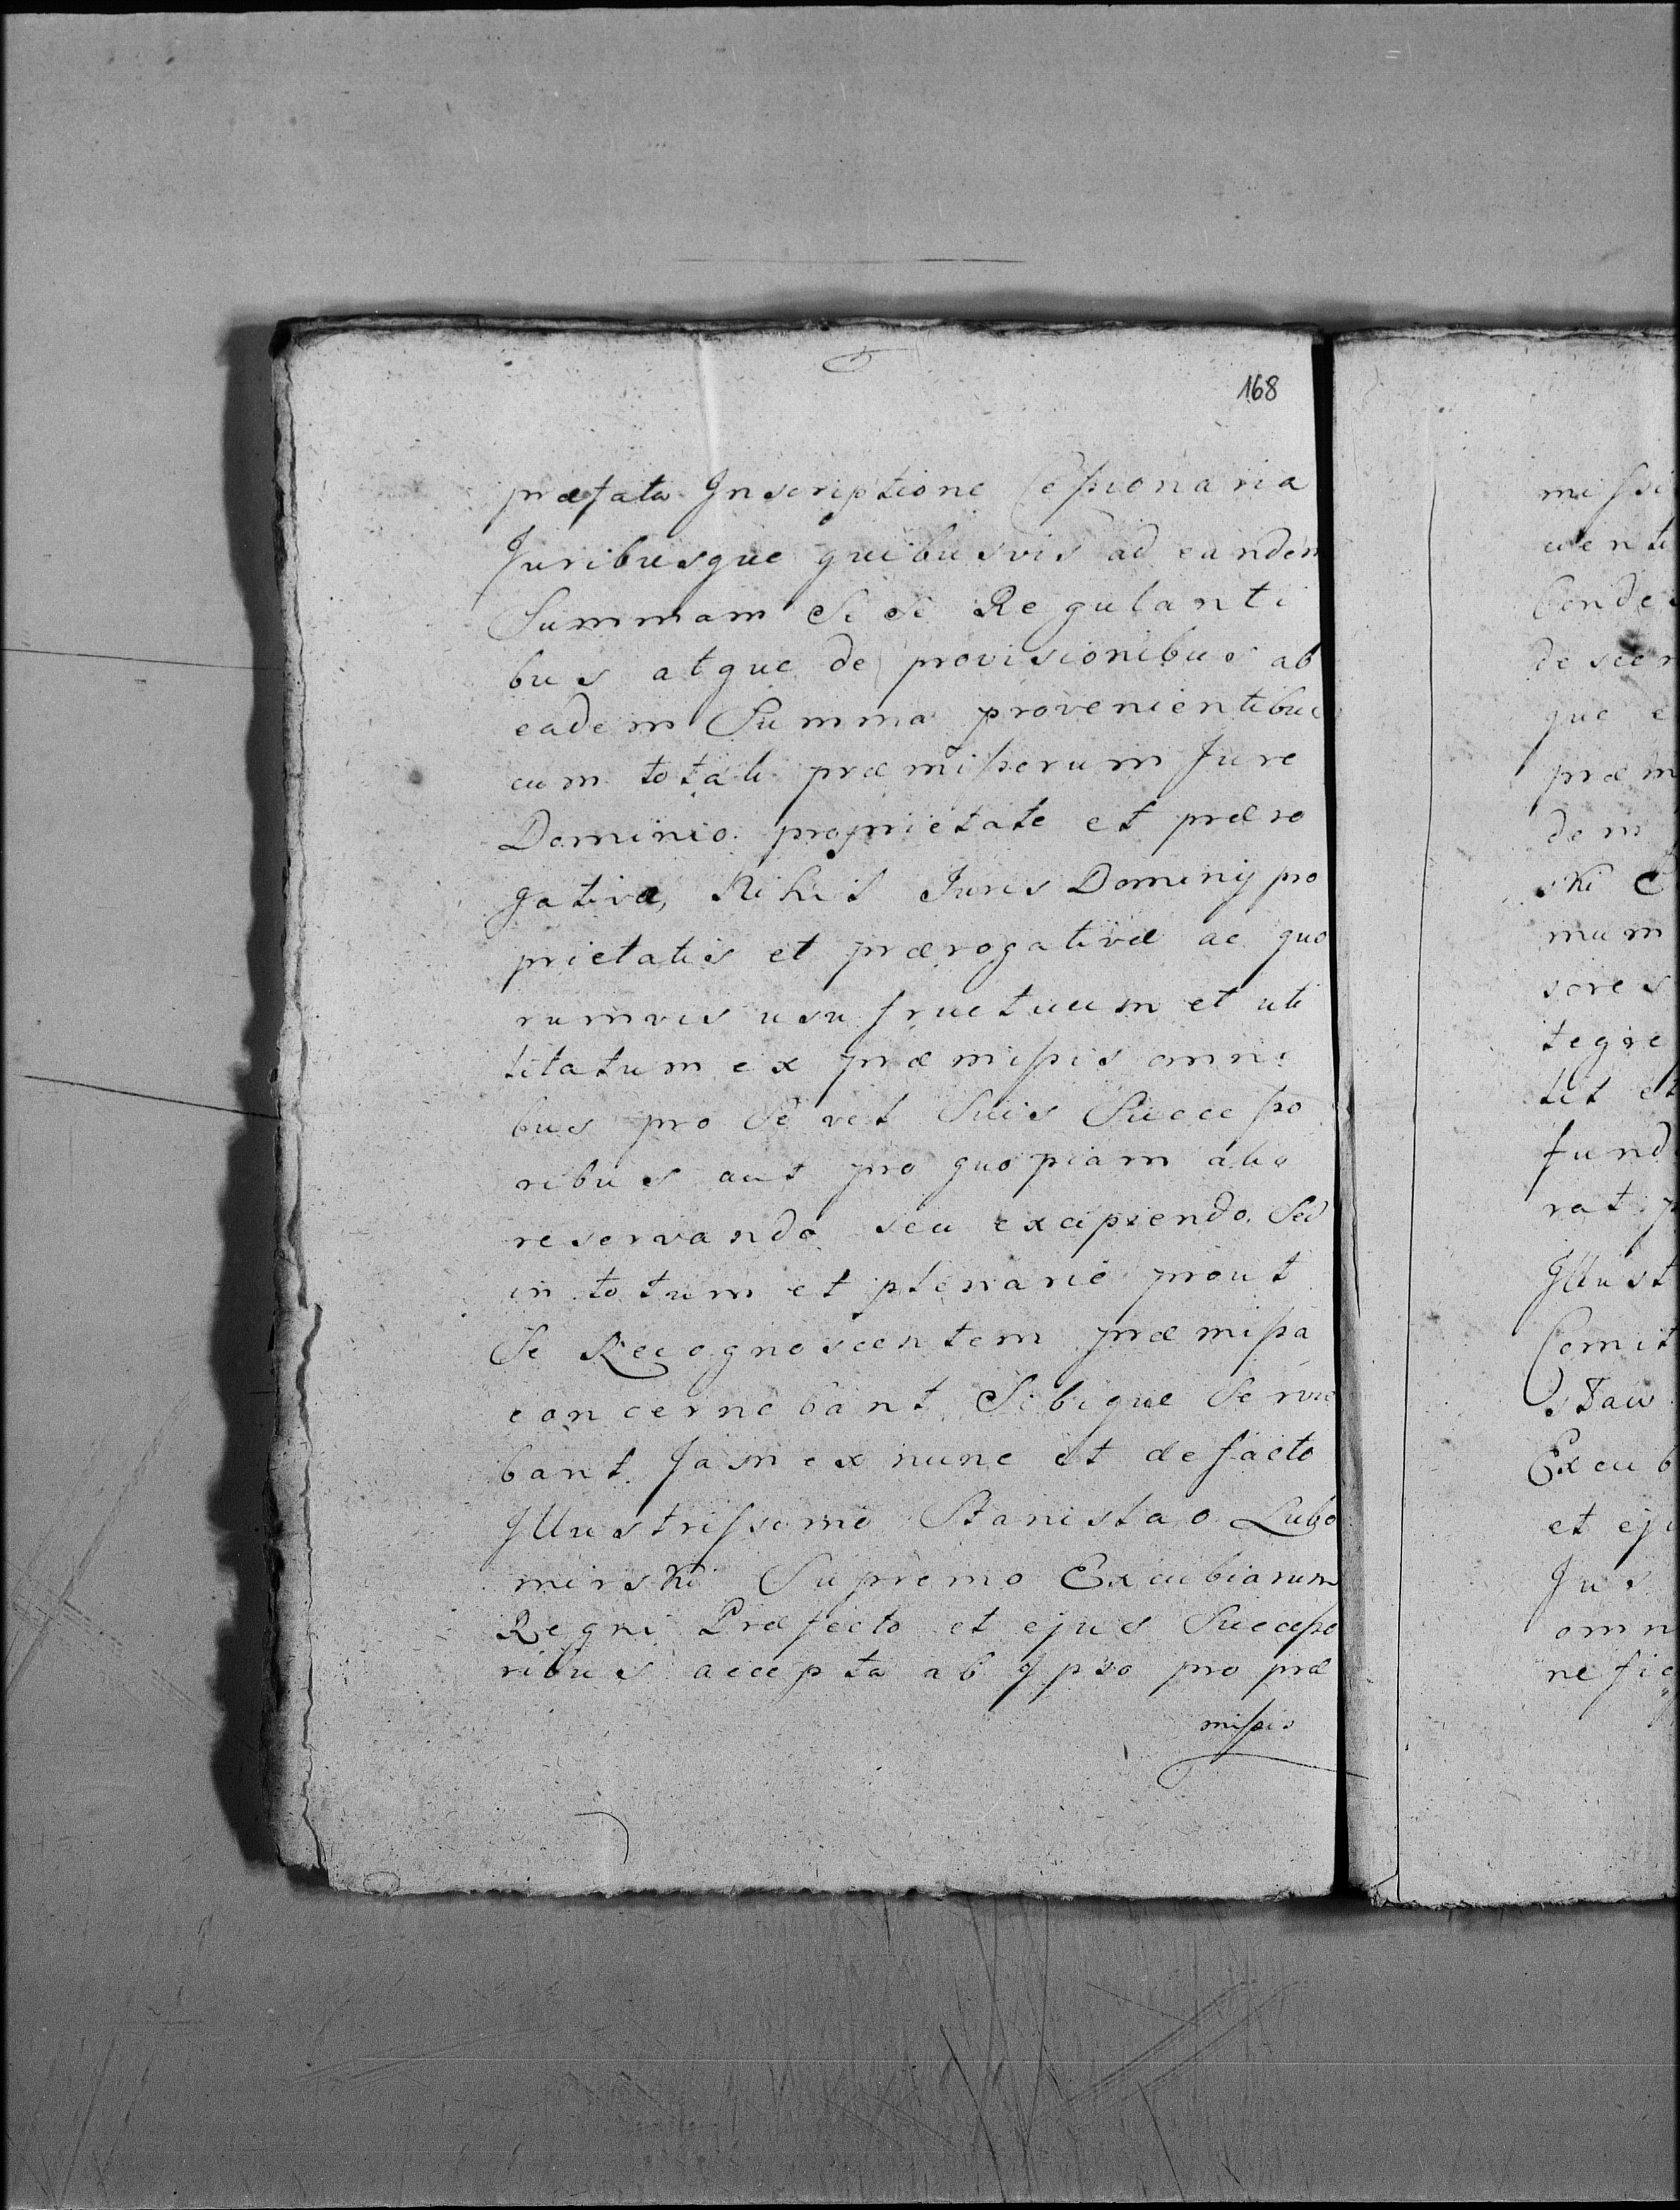 168
præfata Inscriptione Cessionaria
Juribusque quibusvis ad eandem
Summam Se se Regulanti
bus atque de provisionibus ab
eadem Summa provenientibus
cum totali præmissorum Jure
Dominio proprietate et præro
gativa, Nihil Juris Dominij pro
prietatis et prærogativæ ac quo
rumvis usu fructuum et uti
litatum ex præmissis omni
bus pro Se vel Suis Successo
ribus aut pro quopiam alio
reservando seu excipiendo. Sed
in totum et plenarie prout
Se Recognoscentem præmissa
concernebant Sibique Servie
bant Jam ex nunc et de facto
Illustrissimo Stanislao Lubo
mirski Supremo Excubiarum
Regni Præfecto et ejus Successo
ribus accepta ab Ipso pro præ
missis
missi
uent
Conde
descen
que e
præm
dem
ski C
mum
sores
tegre
let et
fund
rat p
Illust
Comit
Staw
Excub
et eju
Jus
omn
nefic